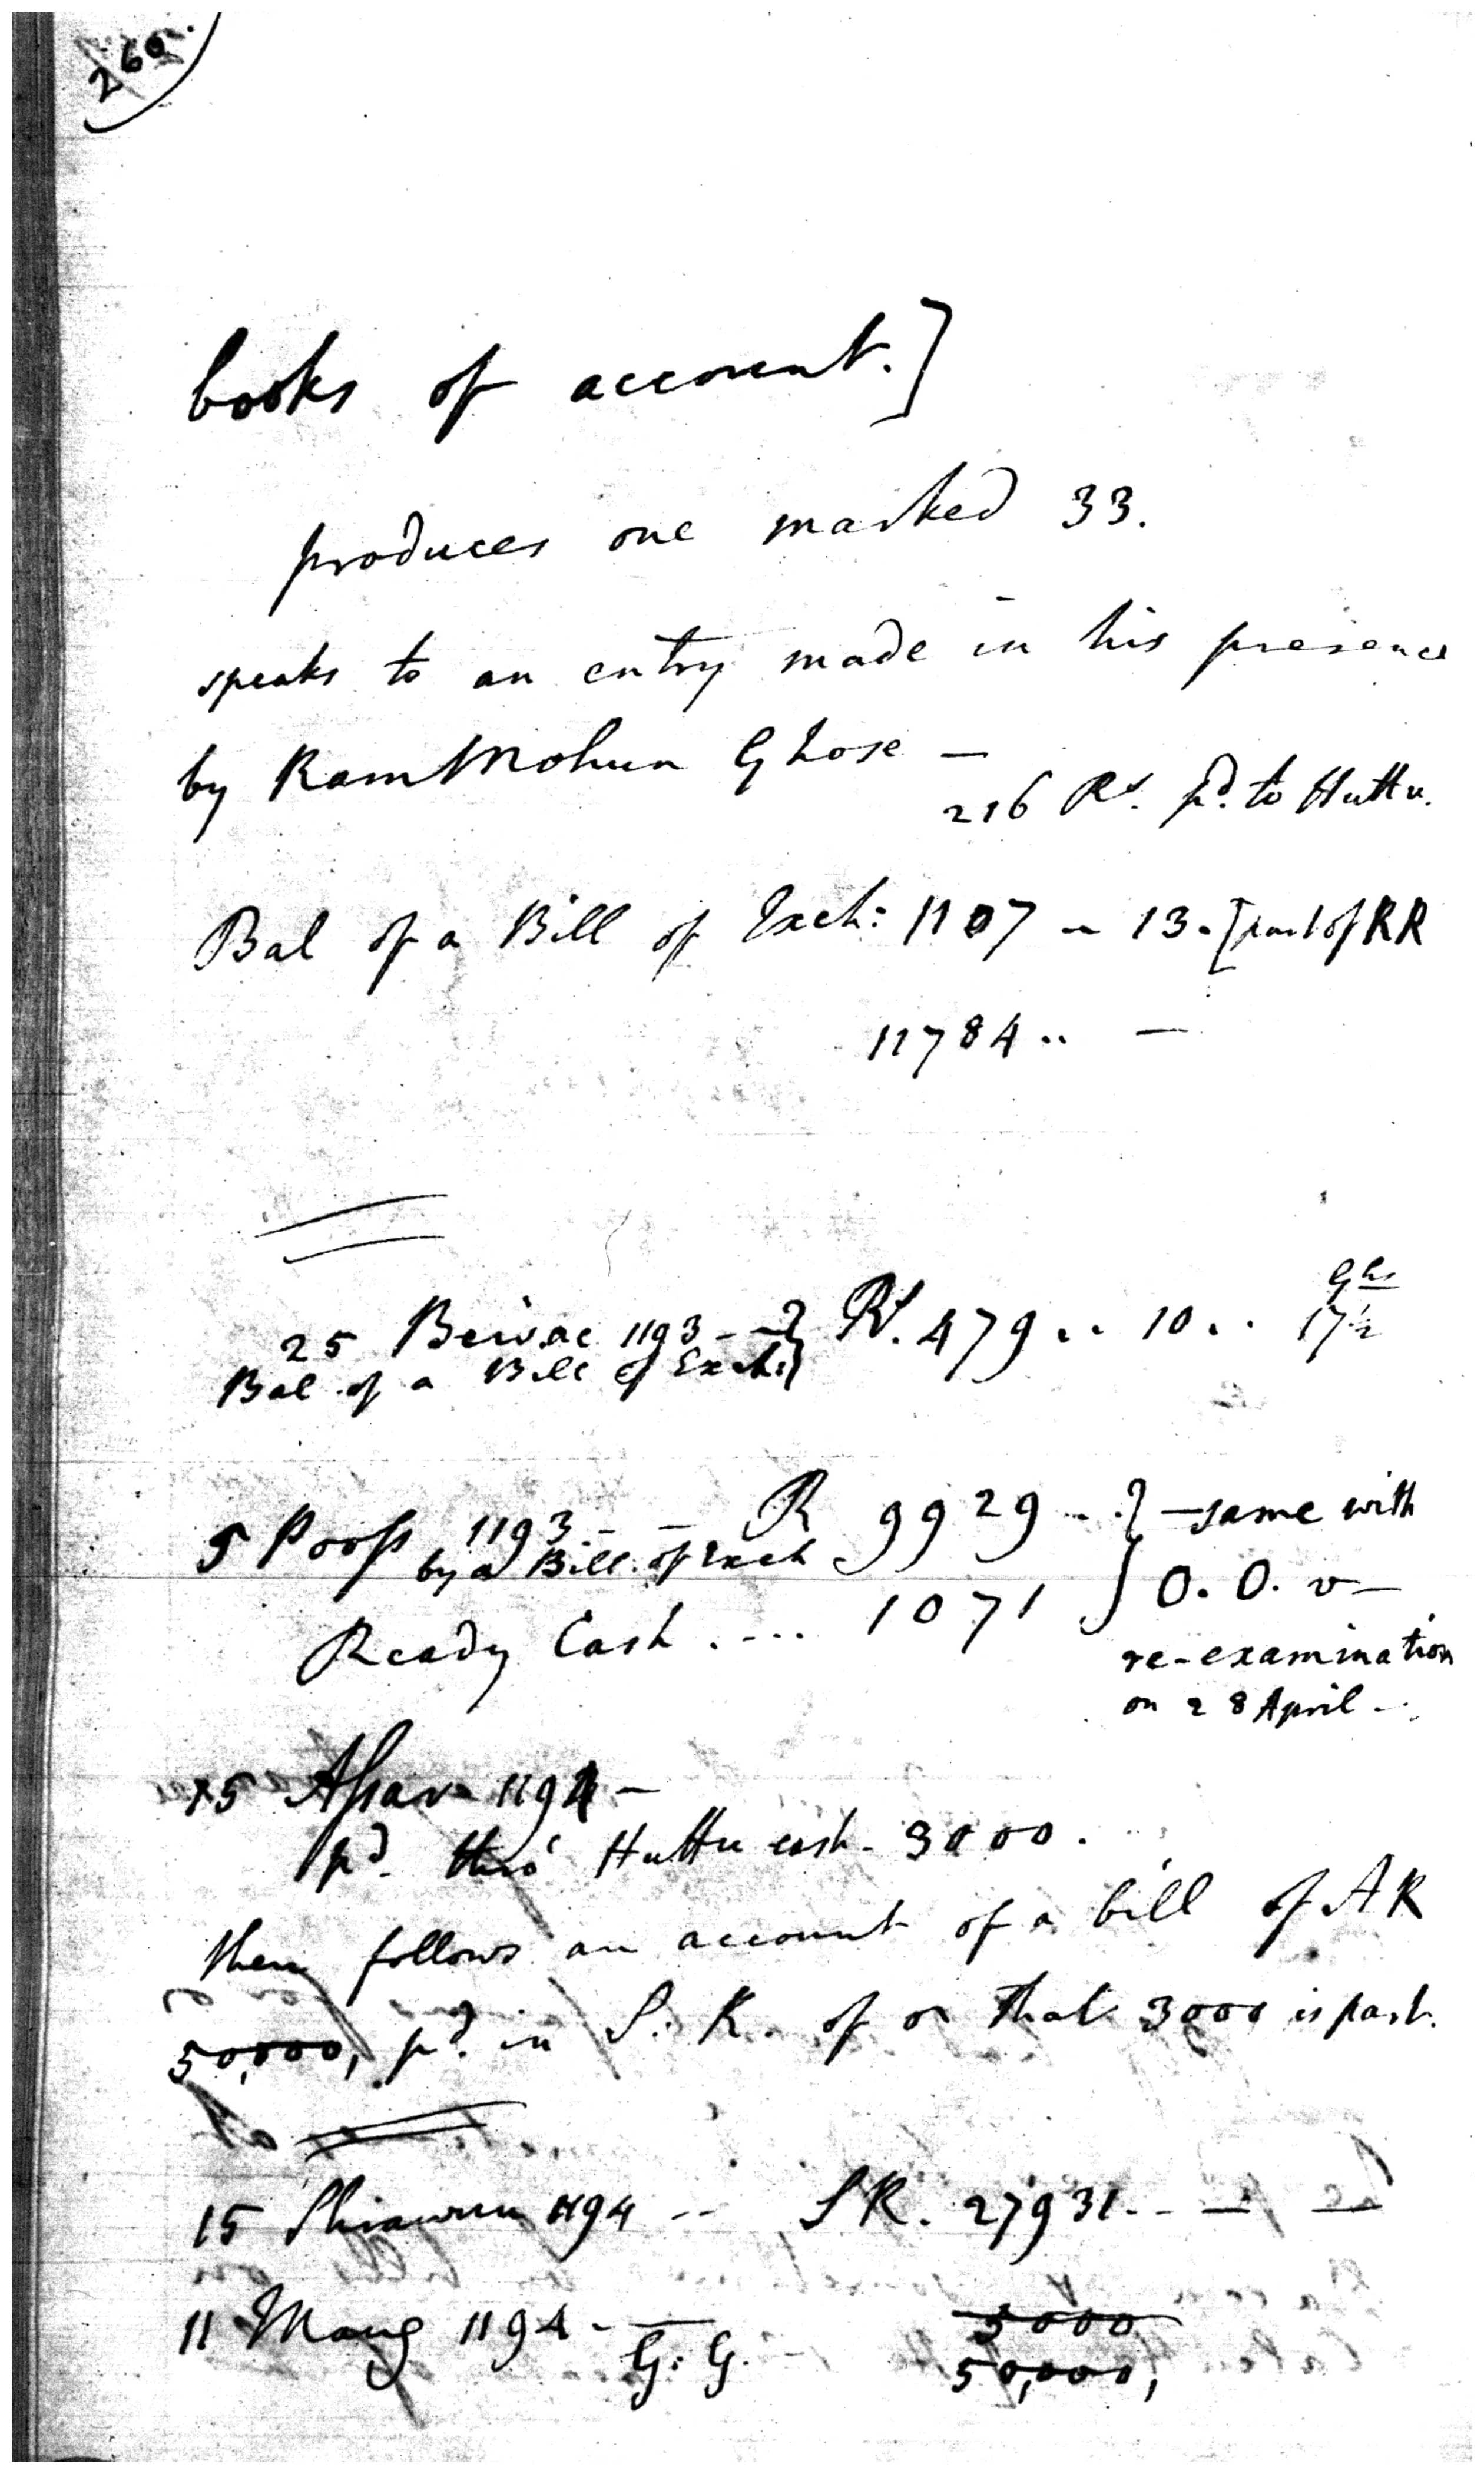 260.
books of account.]
produces one marked 33.
speaks to an entry made in his presence
by Ram Mohun Ghose —
216 Rs. pd. to Huttu.
Bal of a Bill of Exch: 1107 .. 13. [part of RR
11784 .. —
Ghs
25 1193 -- } Rs. 479 .. 10 .. 17½
Bal of a Bill of Exch: }
5 Poos 1193 - - R 9929 .. } — same with
by a Bill of Exch
Ready Cash .... 1071 } O. O. v—
re-examination
on 28 April —
15 Assar 1194 —
pd. thro' Huttu cash - 3000.
then follows an account of a bill of AR
50,000, pd. in S. R. of that 3000 is part.
15 1194 -- SR. 27931. - — —
11 Maug 1194 - — 5000
G: G. 50,000,